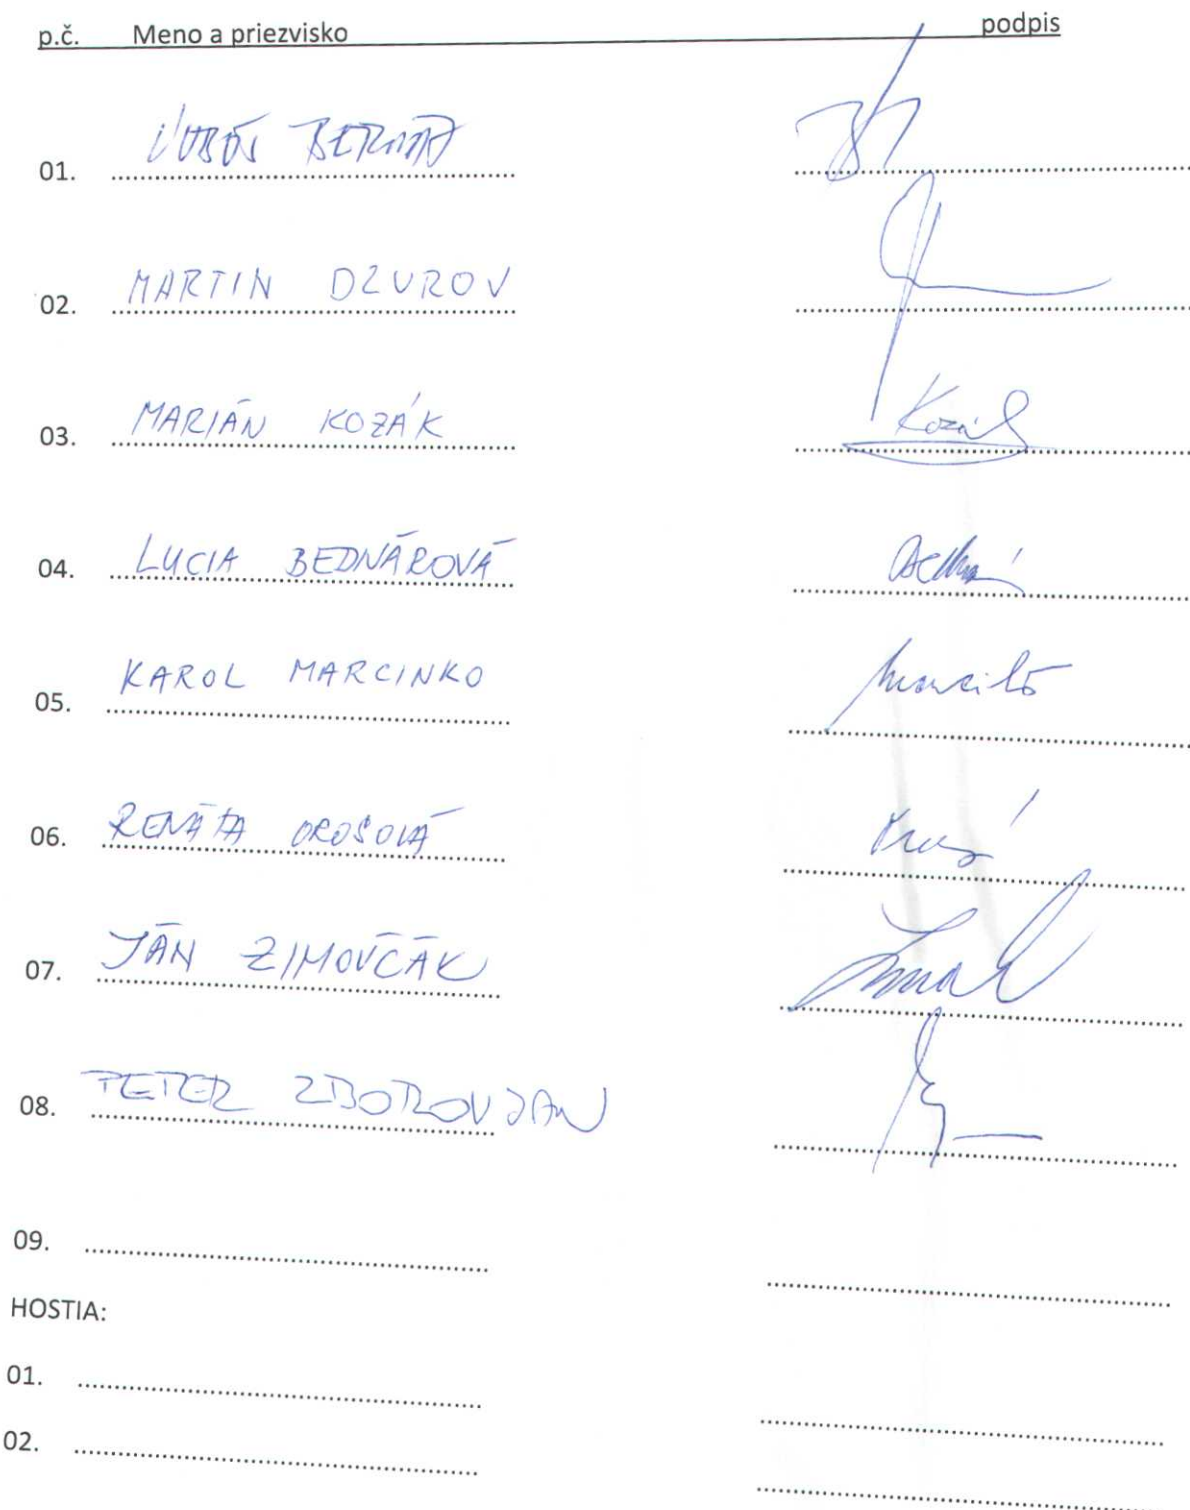 p.č. Meno a priezvisko podpis
01. ĽUBOŠ BERNÁT
02. MARTIN DZUROV
03. MARIÁN KOZÁK Kozák
04. LUCIA BEDNÁROVÁ
05. KAROL MARCINKO
06. RENÁTA OROSOVÁ
07. JÁN ZIMOVČÁK
08. PETER ZBOROVJAN
09.
HOSTIA:
01.
02.